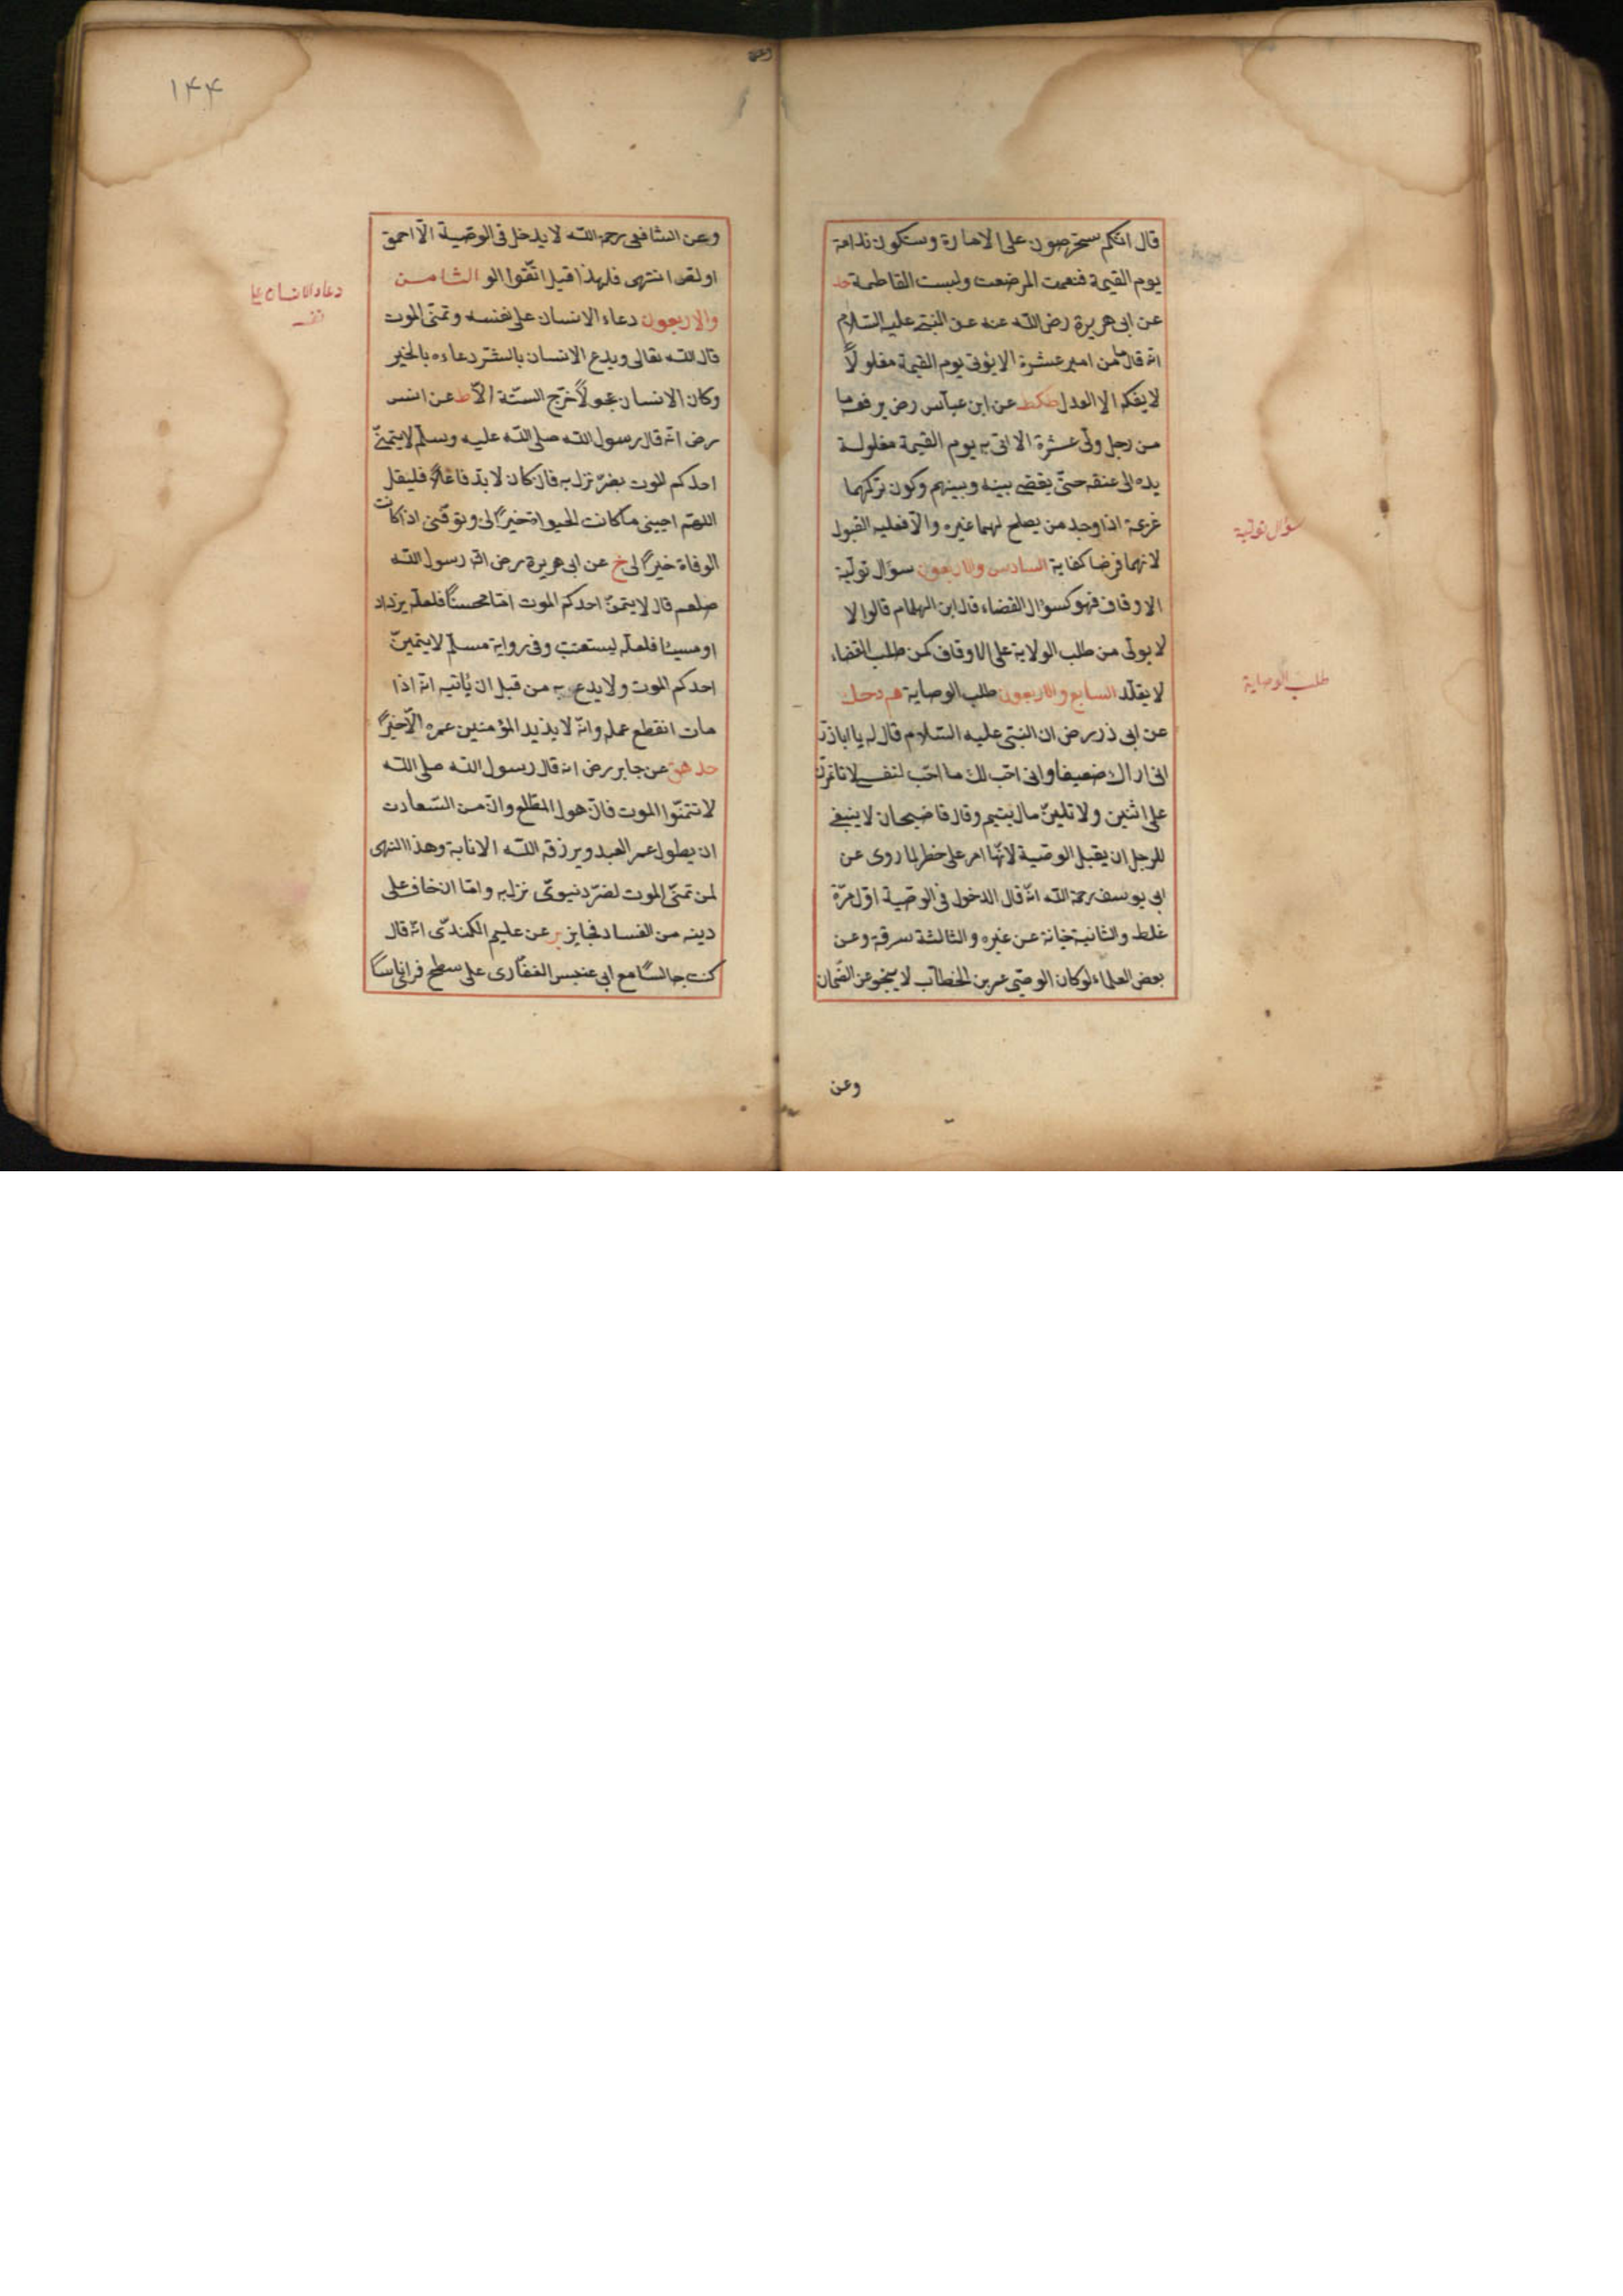 قال انكم ستحرصون على الامارة وستكون ندامة
يوم القيمة فنعمت المرضعت ولبست الفاطمة حد
عن ابى هريرة رضى الله عنه عن النبى عليه السلام
انه قال ما من امير عشرة الا يؤتى يوم القيمة مغلولاً
لا يفكه الا العدل طكط عن ابن عباس رض يرفعها
من رجل ولى عشرة الا اتى به يوم القيمة مغلولة
يده الى عنقه حتى يقضى بينه وبينهم وكون تركهما
عزيمة اذا وجد من يصلح لهما غيره والا فعليه القبول
لانهما فرضا كفاية السادس والاربعون سؤال تولية
الاوقاف فهو كسؤال القضاء قال ابن الهمام قالوا لا
لا يولى من طلب الولاية على الاوقاف كمن طلب القضاء
لا يقلد السابع والاربعون طلب الوصاية م دحك
عن ابى ذر رض ان النبى عليه السلام قال له يا اباذر
انى اراك ضعيفا وانى احب لك ما احب لنفسى لا تأمرن
على اثنين ولا تلين مال يتيم وقال قاضيحان لا ينبغى
للرجل ان يقبل الوصية لانها امر على خطر لما روى عن
ابى يوسف رحمة الله انه قال الدخول فى الوصية اول مرة
غلط والثانية خيانة عن غيره والثالثة سرقة وعن
بعض العلماء لو كان الوصى عمر بن الخطاب لا ينجو عن الضمان
وعن
سؤال تولية
طلب الوصاية
١٤٤
وعن الشافعى رحمة الله لا يدخل فى الوصية الا احمق
او لص انتهى فلهذا قيل اتقوا الو الثامن
والاربعون دعاء الانسان على نفسه وتمنى الموت
قال الله تعالى ويدع الانسان بالشر دعاءه بالخير
وكان الانسان عجولاً خرج الستة الا ط عن انس
رض انه قال رسول الله صلى الله عليه وسلم لا يتمنى
احدكم الموت بضر نزل به فان كان لا بد فاعلاً فليقل
اللهم احينى ما كانت الحيوة خيراً لى وتوفنى اذا كانت
الوفاة خيراً لى خ عن ابى هريرة رض ان رسول الله
صلعم قال لا يتمن احدكم الموت اما محسناً فلعله يزداد
او مسيئا فلعله يستعتب وفى رواية مسلم لا يتمنين
احدكم الموت ولا يدع به من قبل ان يأتيه انه اذا
مات انقطع عمله وانه لا يذيد المؤمنين عمره الا خيراً
حد هق عن جابر رض انه قال رسول الله صلى الله
لا تتمنوا الموت فان هول المطلع وان من السعادت
ان يطول عمر العبد ويرزقه الله الانابة وهذا النهى
لمن تمنى الموت لضر دنيوى نزل به واما ان خاف على
دينه من الفساد فجايز بر عن عليم الكندى انه قال
كنت جالساً مع ابى عنبس الغفارى على سطح فراى ناساً
دعاء الانسان على
نفسه